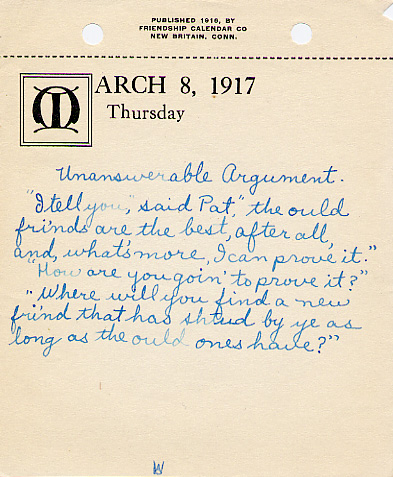 PUBLISHED 1916, BY
FRIENDSHIP CALENDAR CO
NEW BRITAIN, CONN.
MARCH 8, 1917
Thursday
Unanswerable Argument.
"I tell you", said Pat, "the ould
frinds are the best, after all,
and, what's more, I can prove it."
"How are you goin' to prove it?"
"Where will you find a new
frind that has shtud by ye as
long as the ould ones have?"
W